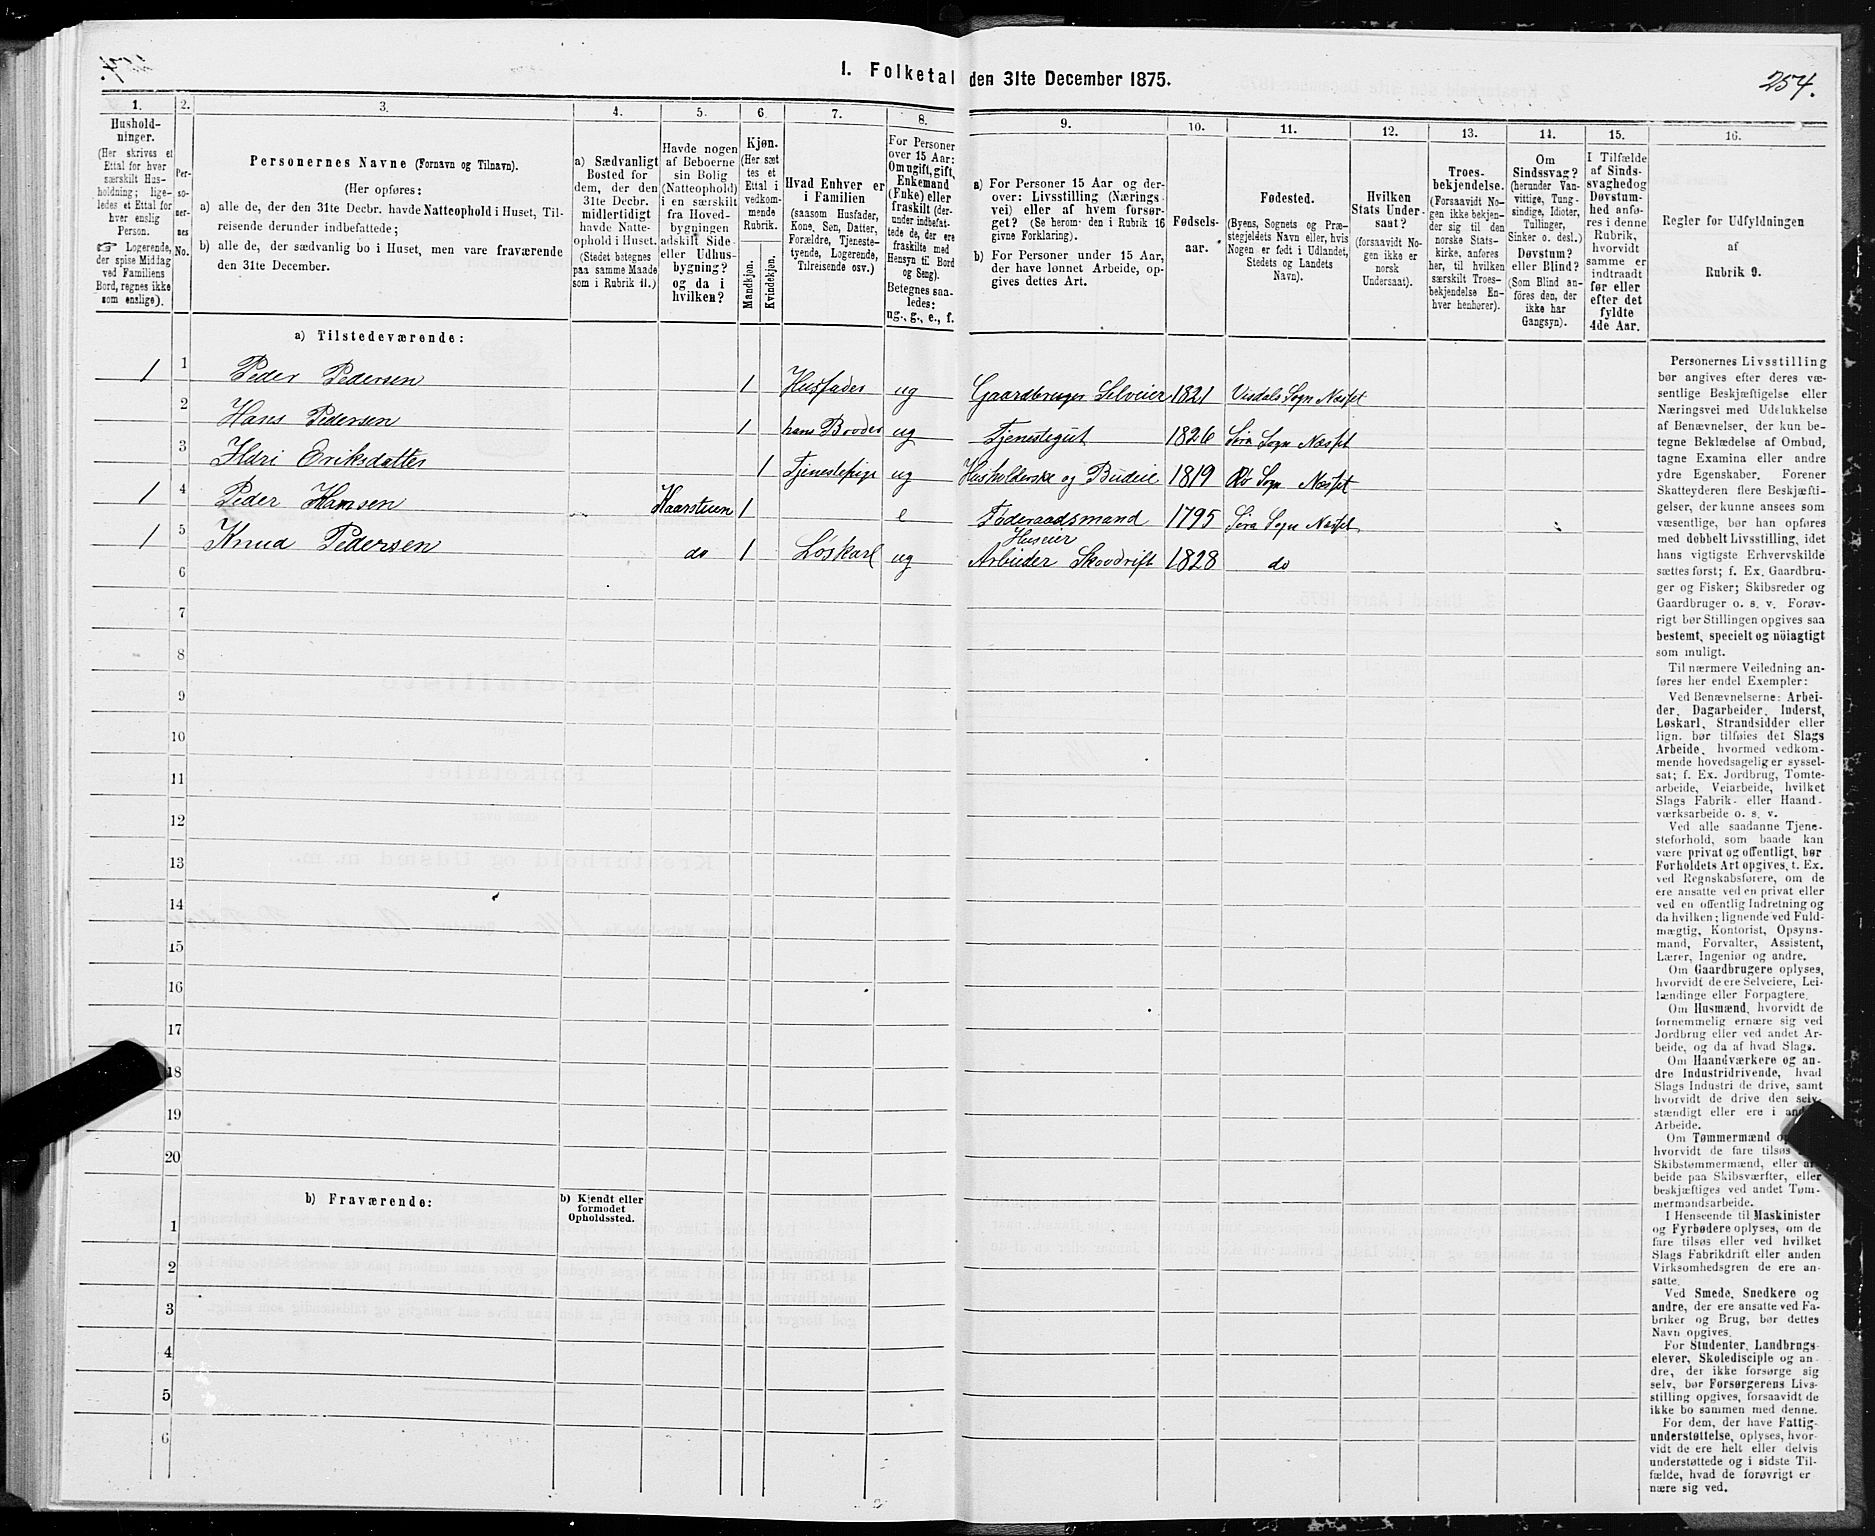 1. Folketal den 31te December 1875.
254.
1. 2. 3. 4. 5. 6. 7. 8. 9. 10. 11. 12. 13. 14. 15. 16.
Hushold-
ninger.
(Her skrives et
Ettal for hver
særskilt Hus-
holdning; lige-
ledes et Ettal for
hver enslig
Person.
☞ Logerende,
der spise Middag
ved Familiens
Bord, regnes ikke
som enslige).
Per-
so-
ner-
nes
No.
Personernes Navne (Fornavn og Tilnavn).
(Her opføres:
a) alle de, der den 31te Decbr. havde Natteophold i Huset, Til-
reisende derunder indbefattede;
b) alle de, der sædvanlig bo i Huset, men vare fraværende
den 31te December.
a) Sædvanligt
Bosted for
dem, der den
31te Decbr.
midlertidigt
havde Natte-
ophold i Huset.
(Stedet betegnes
paa samme Maade
som i Rubrik 11.)
Havde nogen
af Beboerne
sin Bolig
(Natteophold)
i en særskilt
fra Hoved-
bygningen
adskilt Side-
eller Udhus-
bygning?
og da i
hvilken?
Kjøn.
(Her sæt
tes et
Ettal i
vedkom-
mende
Rubrik.
Mandkjøn.
Kvindekjøn.
Hvad Enhver er
i Familien
(saasom Husfader,
Kone, Søn, Datter,
Forældre, Tjeneste-
tyende, Logerende,
Tilreisende osv.)
For Personer
over 15 Aar:
Om ugift, gift,
Enkemand
(Enke) eller
fraskilt (der-
under indbefat-
tede de, der ere
fraskilte med
Hensyn til Bord
og Seng).
Betegnes saa-
ledes:
ug., g., e., f.
a) For Personer 15 Aar og der-
over: Livsstilling (Nærings-
vei) eller af hvem forsør-
get? (Se herom den i Rubrik 16
givne Forklaring).
b) For Personer under 15 Aar,
der have lønnet Arbeide, op-
gives dettes Art.
Fødsels-
aar.
Fødested.
(Byens, Sognets og Præ-
stegjeldets Navn eller, hvis
Nogen er født i Udlandet,
Stedets og Landets
Navn).
Hvilken
Stats Under-
saat?
(forsaavidt No-
gen ikke er
norsk
Undersaat).
Troes-
bekjendelse.
(Forsaavidt No-
gen ikke bekjen-
der sig til den
norske Stats-
kirke, anføres
her, til hvilken
særskilt Troes-
bekjendelse En-
hver henhører).
Om
Sindssvag?
(herunder Van-
vittige, Tung-
sindige, Idioter,
Tullinger,
Sinker o. desl.)
Døvstum?
eller Blind?
(Som Blind an-
føres den, der
ikke har
Gangsyn).
I Tilfælde
af Sinds-
svaghed og
Døvstum-
hed anfø-
res i denne
Rubrik,
hvorvidt
samme er
indtraadt
før eller
efter det
fyldte
4de Aar.
Regler for Udfyldningen
af
Rubrik 9.
a) Tilstedeværende:
1 1 Peder Pedersen 1 Husfader ug Gaardbruger Selveier 1821 Visdals Sogn Næsset
2 Hans Pedersen 1 hans Broder ug Tjenestegut 1826 Sira Sogn Næsset
3 Ildri Eriksdatter 1 Tjenestepige ug Husholderske og Budeie 1819 Rø Sogn Næsset
1 4 Peder Hansen Kaarstuen 1 e Føderaadsmand 1795 Sira Sogn Næsset
1 5 Knud Pedersen do 1 Løskarl ug Huseier Arbeider Skovdrift 1828 do
6
7
8
9
10
11
12
13
14
15
16
17
18
19
20
b) Fraværende:
b) Kjendt eller
formodet
Opholdssted.
1
2
3
4
5
6
Personernes Livsstilling
bør angives efter deres væ-
sentlige Beskjæftigelse eller
Næringsvei med Udelukkelse
af Benævnelser, der kun be-
tegne Beklædelse af Ombud,
tagne Examina eller andre
ydre Egenskaber. Forener
Skatteyderen flere Beskjæfti-
gelser, der kunne ansees som
væsentlige, bør han opføres
med dobbelt Livsstilling, idet
hans vigtigste Erhvervskilde
sættes først; f. Ex. Gaardbru-
ger og Fisker; Skibsreder og
Gaardbruger o. s. v. Forøv-
rigt bør Stillingen opgives saa
bestemt, specielt og nöiagtigt
som muligt.
Til nærmere Veiledning an-
føres her endel Exempler:
Ved Benævnelserne: Arbei-
der, Dagarbeider, Inderst,
Løskarl, Strandsidder eller
lign. bør tilføies det Slags
Arbeide, hvormed vedkom-
mende hovedsagelig er syssel-
sat; f. Ex. Jordbrug, Tomte-
arbeide, Veiarbeide, hvilket
Slags Fabrik- eller Haand-
værksarbeide o. s. v.
Ved alle saadanne Tjene-
steforhold, som baade kan
være privat og offentligt, bør
Forholdets Art opgives, t. Ex.
ved Regnskabsførere, om de
ere ansatte ved en privat eller
ved en offentlig Indretning og
da hvilken; lignende ved Fuld-
mægtig, Kontorist, Opsyns-
mand, Forvalter, Assistent,
Lærer, Ingeniør og andre.
Om Gaardbrugere oplyses,
hvorvidt de ere Selveiere, Lei-
lændinge eller Forpagtere.
Om Husmænd, hvorvidt de
fornemmelig ernære sig ved
Jordbrug eller ved andet Ar-
beide, og da af hvad Slags.
Om Haandværkere og an-
dre Industridrivende, hvad
Slags Industri de drive, samt
hvorvidt de drive den selv-
stændigt eller ere i
Arbeide.
Om Tømmermænd
hvorvidt de fare tilsøs
Skibstømmermænd, eller ar-
beide paa Skibsværfter, eller
beskjæftiges ved andet Tøm-
mermandsarbeide.
I Henseende til Maskinister
og Fyrbødere oplyses, om de
fare tilsøs eller ved hvilket
Slags Fabrikdrift eller anden
Virksomhedsgren de ere an-
satte.
Ved Smede, Snedkere og
andre, der ere ansatte ved Fa-
briker og Brug, bør dettes
Navn opgives.
For Studenter, Landbrugs-
elever, Skoledisciple og an-
dre, der ikke forsørge sig
selv, bør Forsørgerens Livs-
stilling opgives, forsaavidt de
ikke bo sammen med denne.
For dem, der have Fattig-
understøttelse, oplyses, hvor-
vidt de ere helt eller delvis
understøttede og i sidste Til-
fælde, hvad de forøvrigt er
nære sig ved.